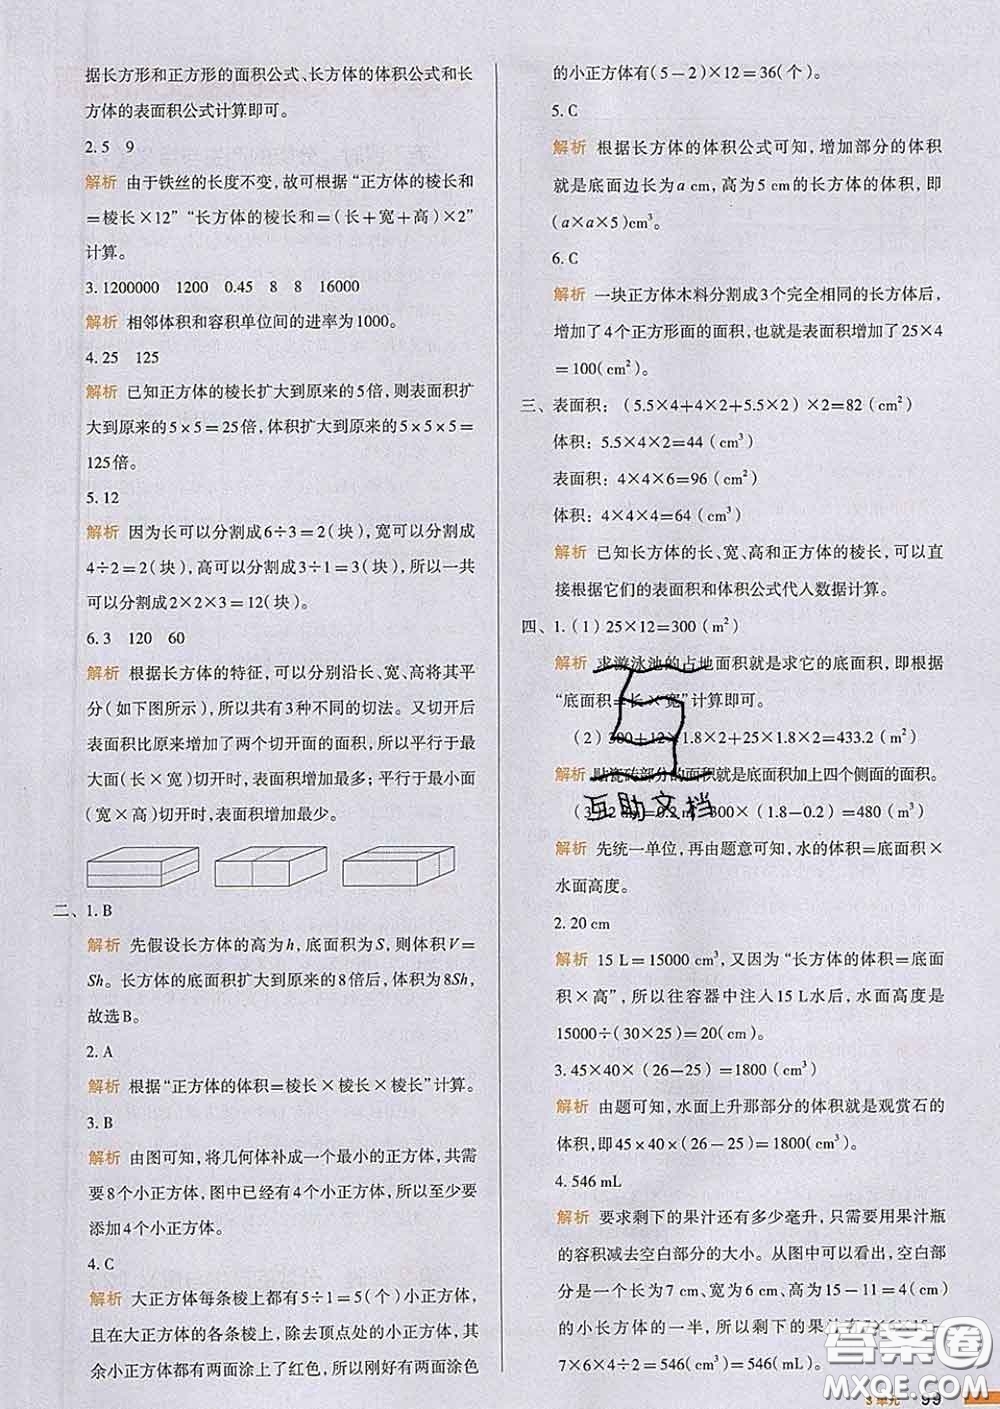 据长方形和正方形的面积公式、长方体的体积公式和长
方体的表面积公式计算即可。
2.5 9
解析 由于铁丝的长度不变，故可根据“正方体的棱长和
=棱长×12”“长方体的棱长和=(长+宽+高)×2”
计算。
3.1200000 1200 0.45 8 8 16000
解析 相邻体积和容积单位间的进率为1000。
4.25 125
解析 已知正方体的棱长扩大到原来的5倍，则表面积扩
大到原来的5×5=25倍，体积扩大到原来的5×5×5=
125倍。
5.12
解析 因为长可以分割成6÷3=2(块)，宽可以分割成
4÷2=2(块)，高可以分割成3÷1=3(块)，所以一共
可以分割成2×2×3=12(块)。
6.3 120 60
解析 根据长方体的特征，可以分别沿长、宽、高将其平
分(如下图所示)，所以共有3种不同的切法。又切开后
表面积比原来增加了两个切开面的面积，所以平行于最
大面(长×宽)切开时，表面积增加最多；平行于最小面
(宽×高)切开时，表面积增加最少。
二、1.B
解析 先假设长方体的高为h，底面积为S，则体积V=
Sh。长方体的底面积扩大到原来的8倍后，体积为8Sh，
故选B。
2.A
解析 根据“正方体的体积=棱长×棱长×棱长”计算。
3.B
解析 由图可知，将几何体补成一个最小的正方体，共需
要8个小正方体，图中已经有4个小正方体，所以至少要
添加4个小正方体。
4.C
解析 大正方体每条棱上都有5÷1=5(个)小正方体，
且在大正方体的各条棱上，除去顶点处的小正方体，其
余小正方体都有两面涂上了红色，所以刚好有两面涂色
的小正方体有(5-2)×12=36(个)。
5.C
解析 根据长方体的体积公式可知，增加部分的体积
就是底面边长为a cm，高为5 cm的长方体的体积，即
(a×a×5)cm³。
6.C
解析 一块正方体木料分割成3个完全相同的长方体后，
增加了4个正方形面的面积，也就是表面积增加了25×4
=100(cm²)。
三、表面积：(5.5×4+4×2+5.5×2)×2=82(cm²)
体积：5.5×4×2=44(cm³)
表面积：4×4×6=96(cm²)
体积：4×4×4=64(cm³)
解析 已知长方体的长、宽、高和正方体的棱长，可以直
接根据它们的表面积和体积公式代人数据计算。
四、1.(1)25×12=300(m²)
解析 求游泳池的占地面积就是求它的底面积，即根据
“底面积=长×宽”计算即可。
(2)300+12×1.8×2+25×1.8×2=433.2(m²)
解析 贴瓷砖部分的面积就是底面积加上四个侧面的面积。
互助文档
(3) 2 =0.2 m 300×(1.8-0.2)=480(m³)
解析 先统一单位，再由题意可知，水的体积=底面积×
水面高度。
2.20 cm
解析 15 L=15000 cm³，又因为“长方体的体积=底面
积×高”，所以往容器中注入15 L水后，水面高度是
15000÷(30×25)=20(cm)。
3.45×40×(26-25)=1800(cm³)
解析 由题可知，水面上升那部分的体积就是观赏石的
体积，即45×40×(26-25)=1800(cm³)。
4.546 mL
解析 要求剩下的果汁还有多少毫升，只需要用果汁瓶
的容积减去空白部分的大小。从图中可以看出，空白部
分是一个长为7 cm、宽为6 cm、高为15-11=4(cm)
的小长方体的一半，所以剩下的果汁有7×6×15-
7×6×4÷2=546(cm³)=546(mL)。
答案圈
MXQE.COM
3单元 99